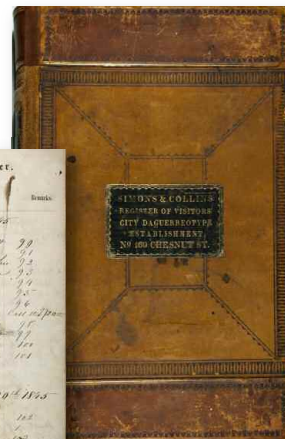 SIMONS & COLLINS
REGISTER OF VISITORS
CITY DAGUERREOTYPE
ESTABLISHMENT
No 100 CHESNUT ST.
er.
Remarks.
90
91
92
93
94
95
96
98
99
100
101
1845
102